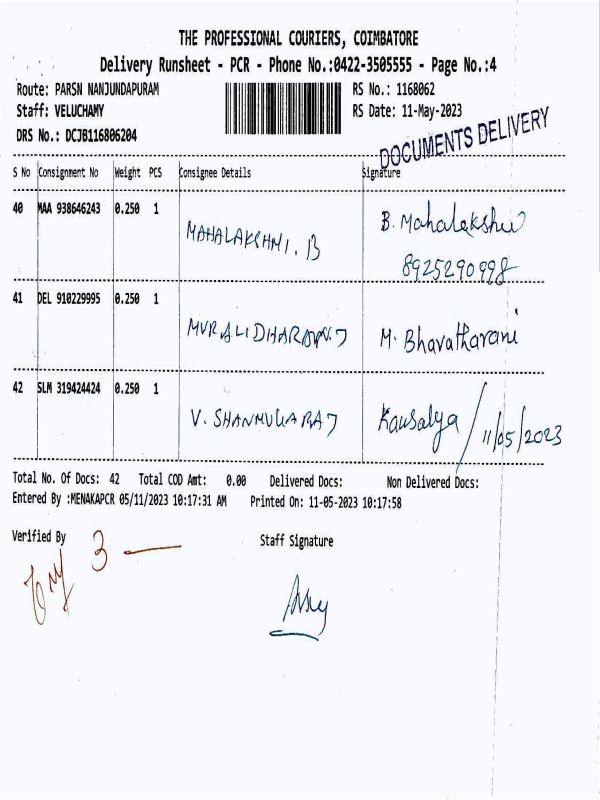 THE PROFESSIONAL COURIERS, COIMBATORE
Delivery Runsheet - PCR - Phone No.:0422-3505555 - Page No.:4
Route: PARSN NANJUNDAPURAM RS No.: 1168062
Staff: VELUCHAMY RS Date: 11-May-2023
DRS No.: DCJB116806204
DOCUMENTS DELIVERY
S No Consignment No Weight PCS Consignee Details Signature
40 MAA 938646243 0.250 1 MAHALAKSHMI. B B. Mahalakshmi
8925290998
41 DEL 910229995 0.250 1 M. Bhavatharani
42 SLM 319424424 0.250 1 V. SHANMUGARAJ Kausalya / 11/05/2023
Total No. Of Docs: 42 Total COD Amt: 0.00 Delivered Docs: Non Delivered Docs:
Entered By :MENAKAPCR 05/11/2023 10:17:31 AM Printed On: 11-05-2023 10:17:58
Verified By Staff Signature
3 —